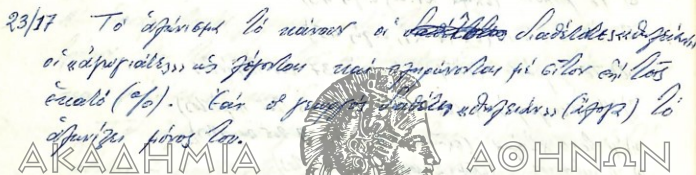 23/17 Τὸ ἁλώνισμα τὸ κάνουν οἱ διαθέτοντες
οἱ «ἀγωγιάτες» ὡς λέγονται καὶ πληρώνονται μὲ σῖτον ἐπὶ τοῖς
ἑκατό (%). Ἐὰν ὁ γεωργὸς διαθέτῃ (ἄλογα) τὸ
ἁλωνίζει μόνος του.
ΑΚΑΔΗΜΙΑ ΑΘΗΝΩΝ